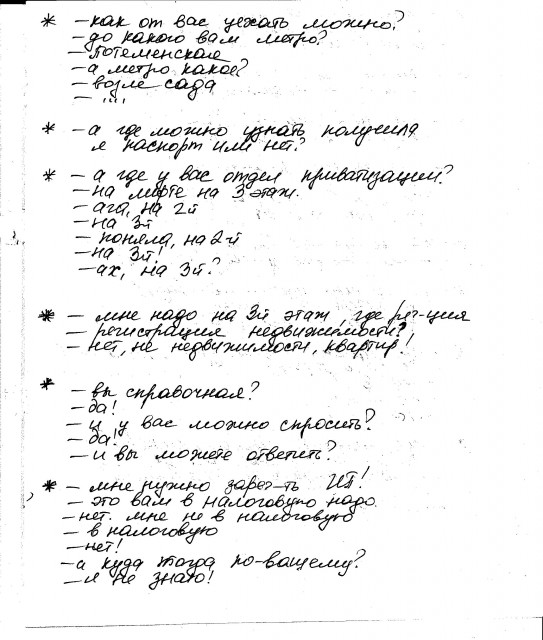 * – как от вас уехать можно?
– до какого вам метро?
– Потеменская
– а метро какое?
– возле сада
– ....
* – а где можно узнать получила
я паспорт или нет?
* – а где у вас отдел приватизации?
– на лифте на 3 этаж.
– ага, на 2й
– на 3й
– поняла, на 2-й
– на 3й!
– ах, на 3й?
* – мне надо на 3й этаж, где рег-ция
– регистрация недвижимости?
– нет, не недвижимости, квартир!
* – вы справочная?
– да!
– и у вас можно спросить?
– да!
– и вы можете ответить?
* – мне нужно зарег-ть ИП!
– это вам в налоговую надо
– нет. мне не в налоговую
– в налоговую
– нет!
– а куда тогда по-вашему?
– я не знаю!